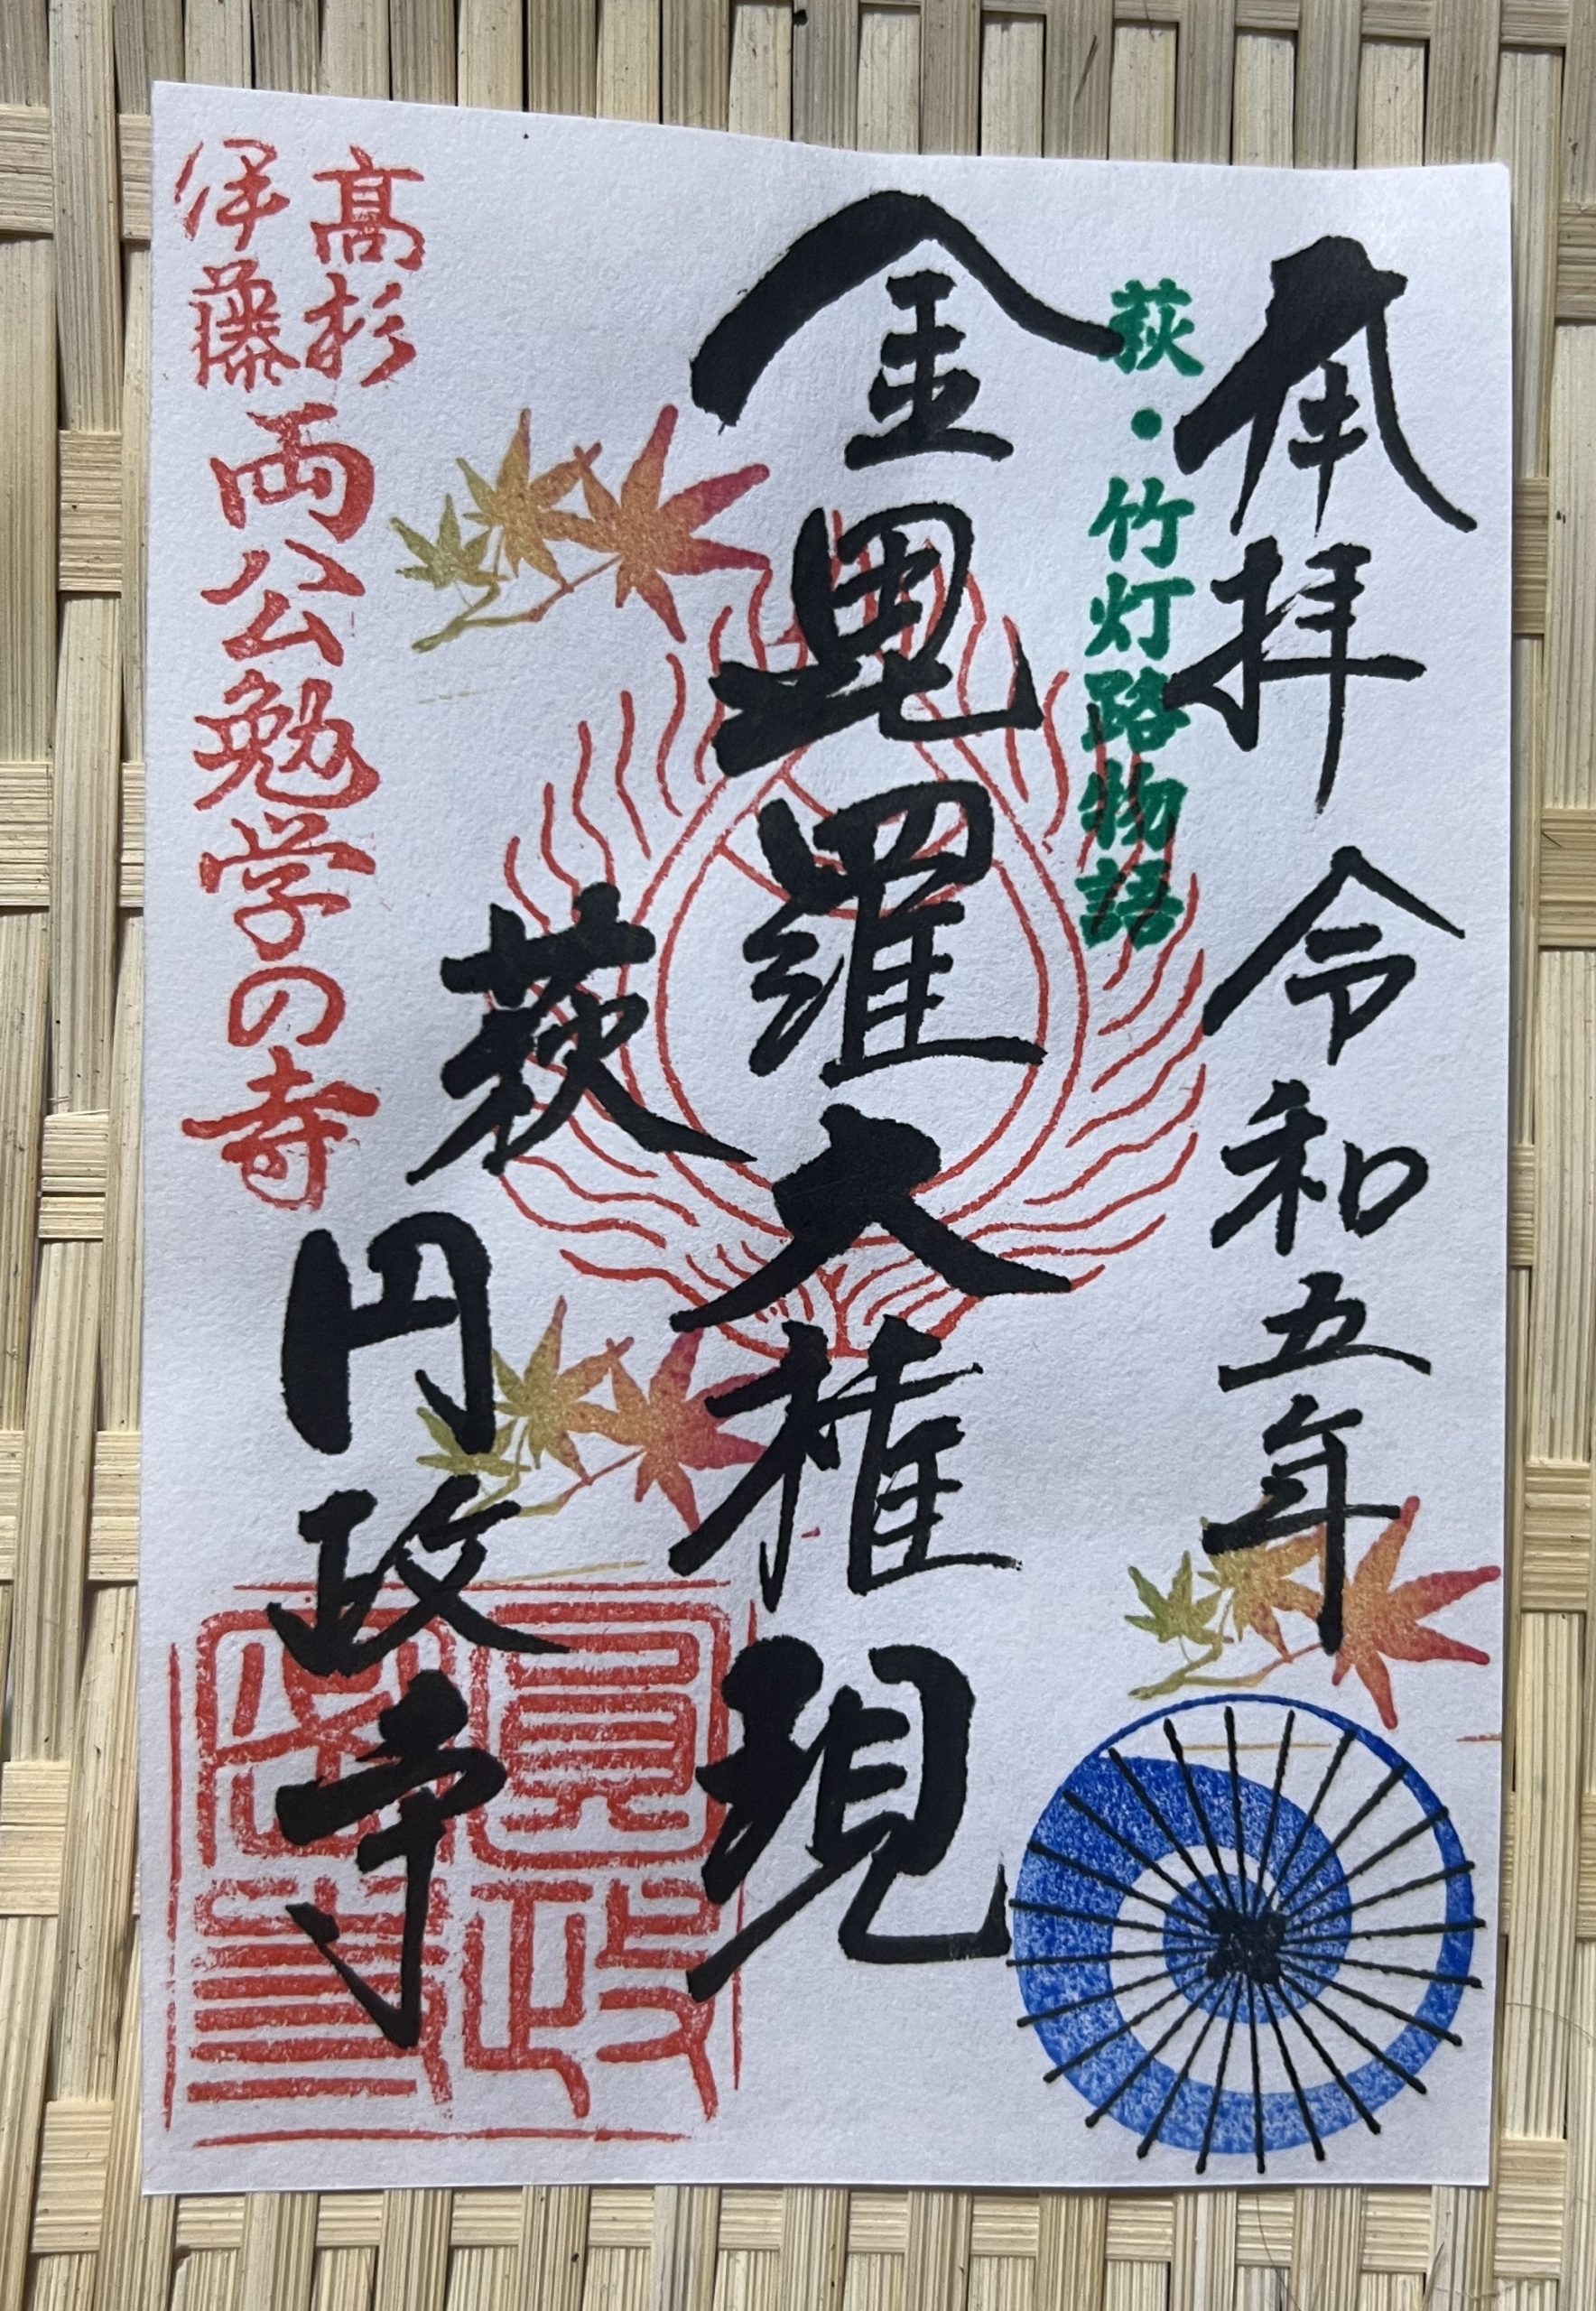 奉拝 令和五年
萩・竹灯路物語
金毘羅大権現
萩 円政寺
高杉
伊藤
両公勉学の寺